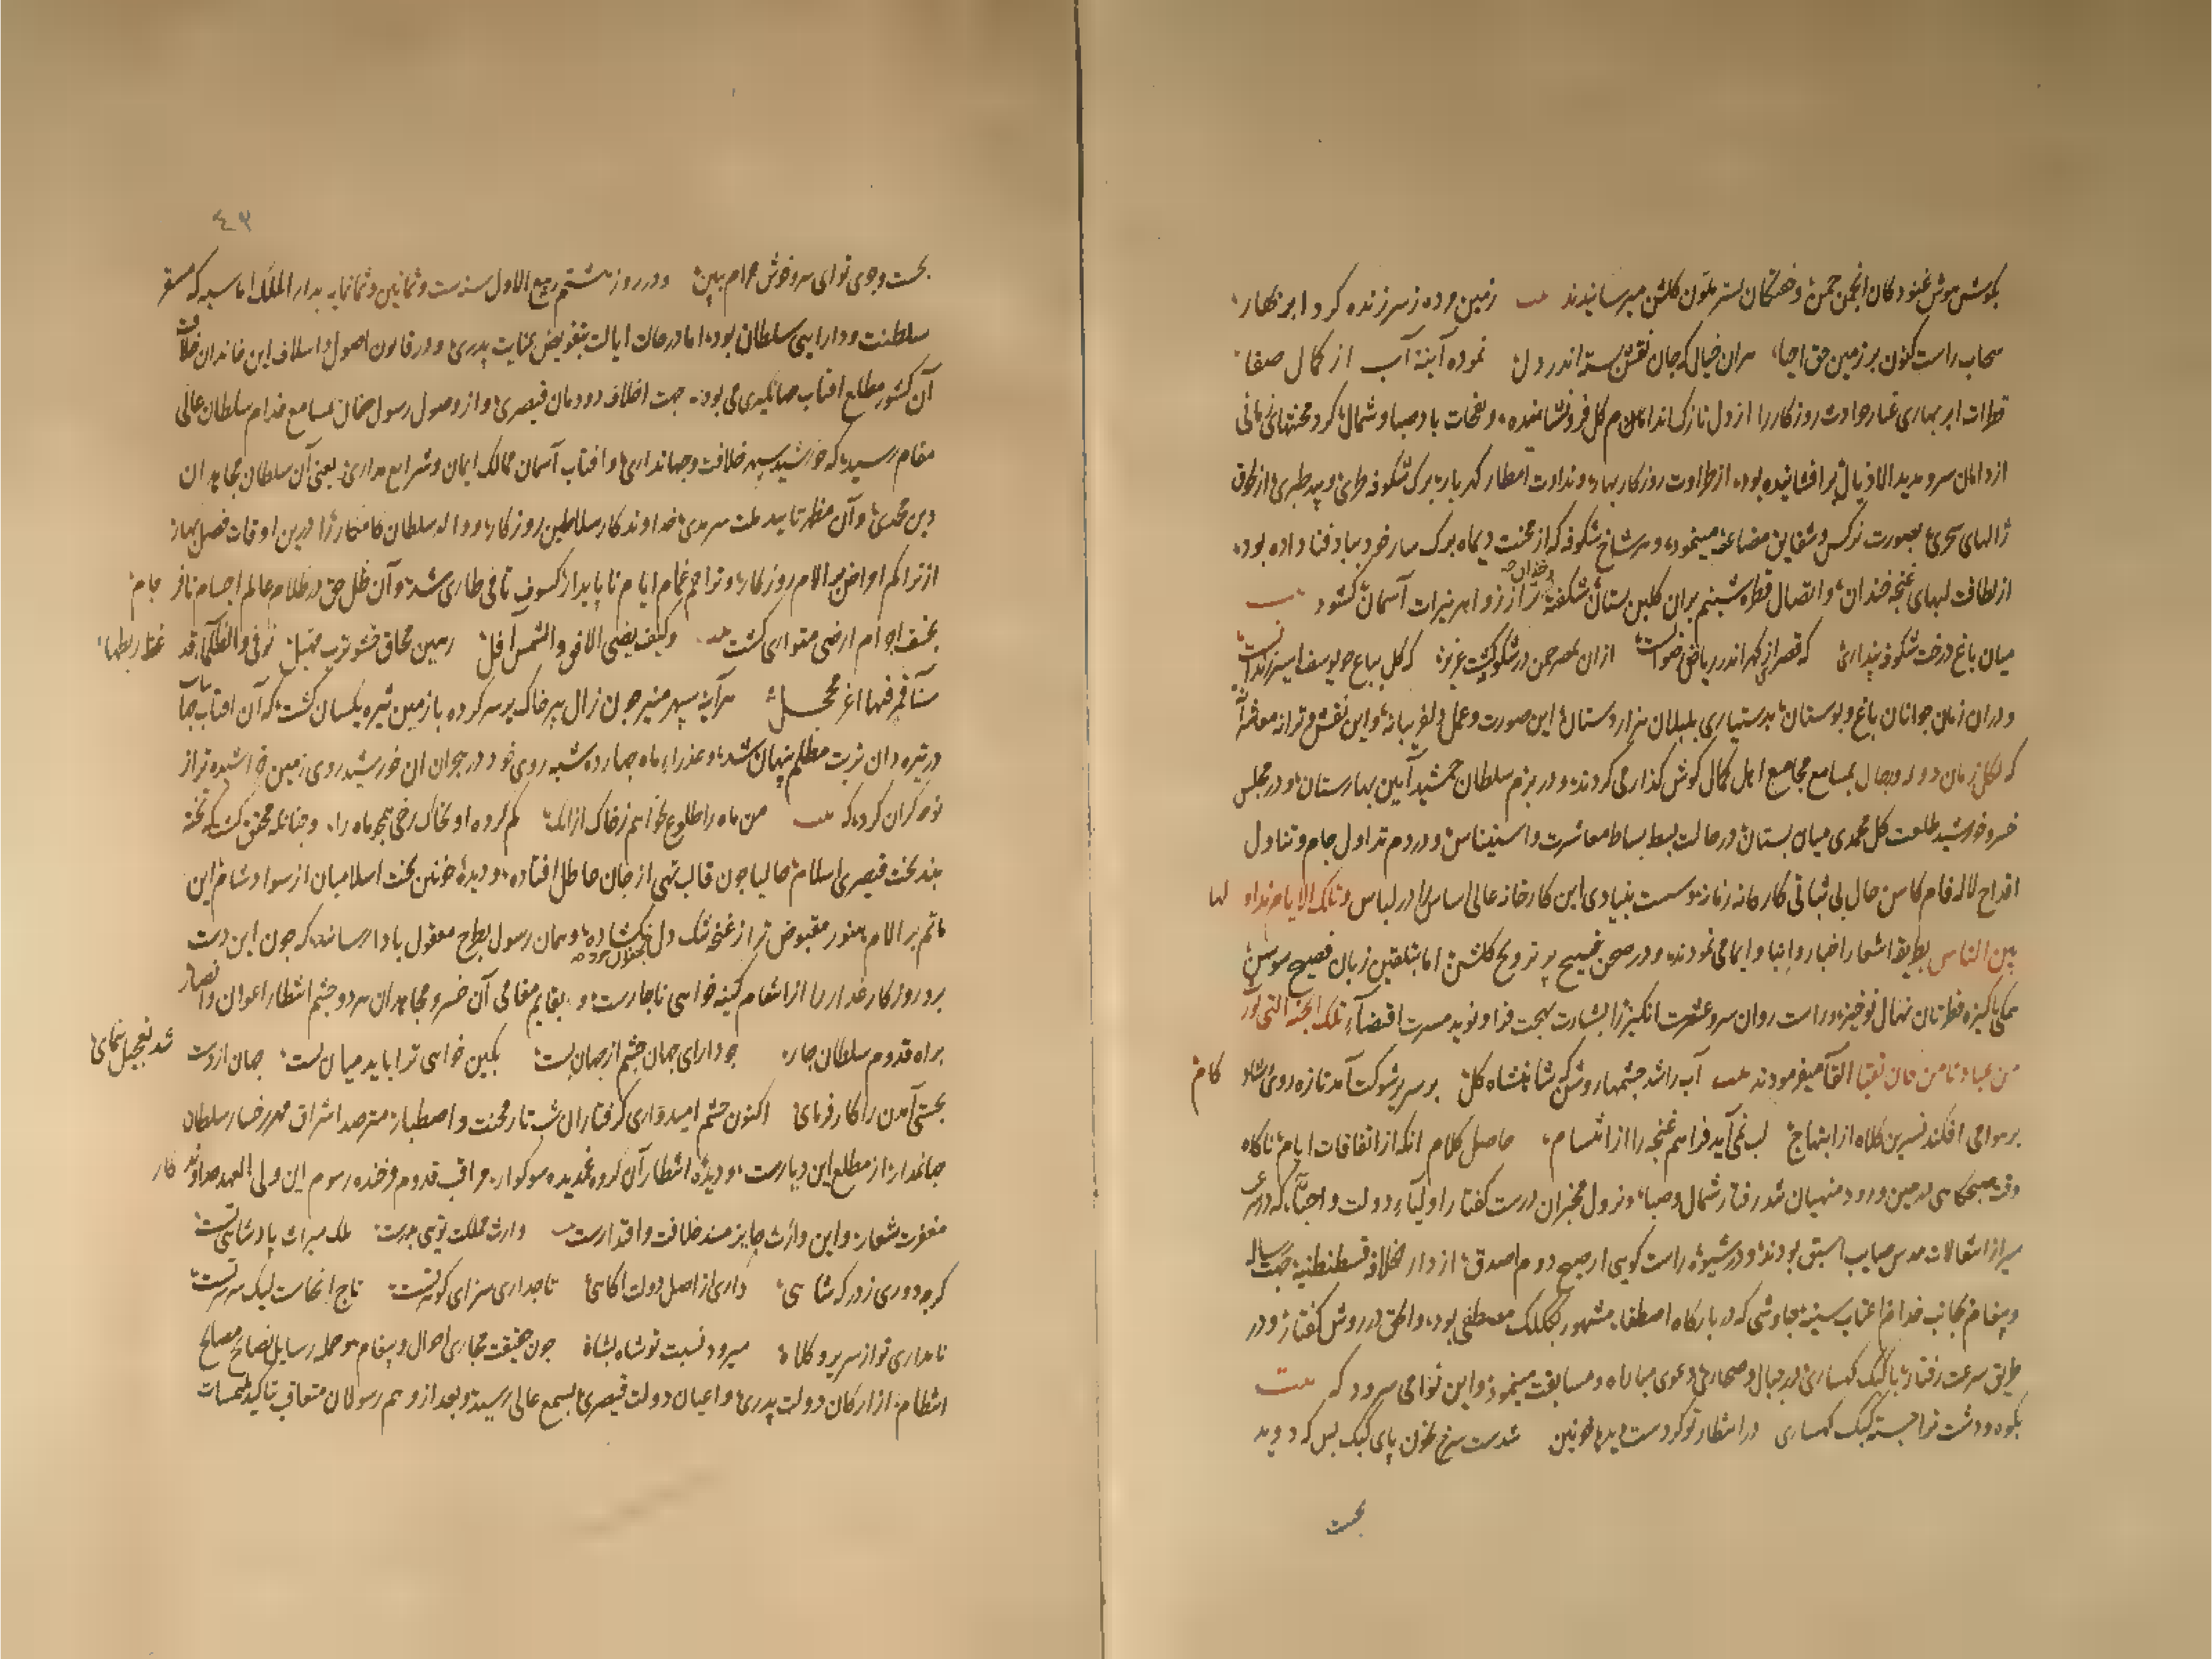 بگوش هوش غنودگان انجمن چمن و خفتگان بستر ملون گلشن میرسانیدند بیت زمین مرده ز سر زنده کرد ابر بهار
سحاب راست کنون بر زمین حق احیا هر ان خیال که جان نقش بسته اندر دل نموده آینه آب از کمال صفا
قطرات ابر بهاری غبار حوادث روزکار را از دل نازک اندامان حرم کل فرو نشانیده و نفحات باد صبا و شمال کرد محنتهای زمانی
از دامان سرو مدید الاذیال بر افشانیده بود از طراوت روزکار بهار و نداوت امطار کهربار برک شکوفه طری و بید طبری از طوق
ژالهای سحری بصورت نرکس و شقایق مضاعف مینمود و هر شاخ شکوفه که از محنت دیماه برک و بار خود بباد فنا داده بود
از لطافت لبهای غنچه خندان و اتصال قطره شبنم بران کلبن بستان شکفته و خندان تر از زواهر نیرات آسمان کشود بیت
میان باغ درخت شکوفه پنداری که قصر از کهر اندر ریاض رضوانست ازان بمصر چمن در شکوفه کشت عزیز که کل بباغ چو یوسف اسیر زندانست
و دران زمان جوانان باغ و بوستان بدستیاری بلبلان هزاردستان این صورت و عمل دلفریبانه و این نقش و ترانه معاشرانه
که لکل زمان دوله و رجال بمسامع مجامع اهل کمال کوش گذار می کردند و در بزم سلطان جمشید آیین بهارستان و در مجلس
خسرو خورشید طلعت کل محمدی میان بستان در حالت بسط بساط معاشرت و استیناس و در دم تداول جام و تناول
اقداح لاله فام کاس حال بی ثباتی کارخانه زمانه و سست بنیادی این کارخانه عالی اساس را در لباس و تلک الایام نداولها
بین الناس بطریق اشعار اخبار و انبا و ایما می نمودند و در صحن فسیح پر ترویح کلشن اما بتلقین زبان فصیح سوسن
بمکی پاکیزه فطرتان نهال نوخیز و راست روان سرو عشرت انکیز را بشارت بهجت فزا و نوید مسرت اقتضاء تلک الجنة التی نورث
من عبادنا من کان تقیا القآ میفرمودند بیت آب را شد چشمها روشن که شاهنشاه کل بر سریر شوکت آمد تازه روی و شاد کام
بر هوا می افکند نسرین کلاه از ابتهاج لب نمی آید فراهم غنچه را از ابتسام حاصل کلام انکه از اتفاقات ایام ناکاه
وقت صبحکاهی در حین ورود منهیان تندرفتار شمال و صبا و نزول مخبران درست کفتار اولیاء دولت و احبا که در سرعت
سیر از انتقالات حدس صایب اسبق بودند و در شیوه راست کویی از صبح دوم اصدق از دار الخلافه قسطنطنیه جهت رساله
و پیغام بجانب خدام اعتاب سنیه چاوشی که در بارکاه اصطفا مشهور بلکلک مصطفی بود و الحق در روش کفتار و در
طریق سرعت رفتار با کبک کهساری در جبال و صحاری دعوی مباراه و مسابقت مینمود و این نوا می سرود که بیت
بکوه و دشت نوا جسته کبک کهساری در انتظار تو کردست دیدها خونین شدست سرخ بخون پای کبک بس که دوید
بجست
۴۳
بجست و جوی نوای سرو خوش خرام ببین و در روز هشتم ربیع الاول سنه ست و ثمانین و ثمانمایه بدار الملک اماسیه که مستقر
سلطنت و دارایی سلطان بود اما در حالت ایالت بتفویض عنایت پدری و در قانون اصول و اسلاف این خاندان خلافت
آن کشور مطلع افتاب جهانگیری می بود جهت اخلاف دودمان قیصری و از وصول رسول چنان بمسامع خدام سلطان عالی
مقام رسید که خورشید سپهر خلافت و جهانداری و افتاب آسمان ممالک ایمان و شرایع مداری یعنی آن سلطان مجاهدان
دین محمدی و آن مظهر تایید ملت سرمدی خداوندکار سلاطین روزکار و والد سلطان کامکار را درین اوقات فصل بهار
از تراکم امراض و الام روزکار و تزاحم غمام ایام ناپایدار کسوف تافی طاری شد و آن ظل حق در ظلام عالم اجسام نافرجام
بخسف اجرام ارضی متواری کشت بیت وکیف یضی الافق والشمس آفل رهین محاق حشو ترب مهیل ترقی والظلماء قد غطا ربطها
سنا قمر فیها اغر محجل هر آینه سپهر منیر چون زال پیر خاک بر سر کرده با زمین تیره یکسان کشت که آن افتاب جهانتاب
در تیره دان تربت مظلم پنهان شد و عذراء ماه چهارده شبه روی خود در هجران ان خورشید روی زمین خراشیده تر از
نوحه گران کرد که بیت من ماه را طلوع نخواهم ز خاک ازانک کم کرده او بخاک رخی همچو ماه را و چنانچه محقق کشت که تخته
بند تخت قیصری اسلام حالیا چون قالب تهی از جان عاطل افتاده و دیده خونین بخت اسلامیان از سواد شام این
ماتم پر الام هنوز مقبوض تر از غنچه تنک دل نکشاده و همان رسول بطرح معقول بادا رسانید که چون این دست
برد روزکار غدار را از انتقام کینه خواهی ناچارست و بقایم مقامی آن خسرو مجاهدان هر دو چشم انتظار اعوان و انصار
براه قدوم سلطان چار چو دارای جهان چشم از جهان بست بکین خواهی ترا باید میان بست جهان از دست شد تعجیل بنمای
بجستی آمدن را کار فرمای اکنون چشم امیدواری کرفتاران شب تار محنت و اصطبار مترصد اشراق مهر رخسار سلطان
جاندار از مطلع این دیارست و دیده انتظار آن کروه غمدیده سوکوار مراقب قدوم فرخنده رسوم این ولی العهد خداوندکار
مغفرت شعار و این وارث حایز مسند خلافت و اقتدارست بیت وارث مملکت تویی بدرست ملک میراث پادشاهی تست
کرچه دوری ز درکه شاهی داری از اصل دولت اکاهی تاجداری سزای کوهر تست تاج انجاست لیک سر سر تست
نامداری تو از سریر و کلاه میرود نسبت تو شاه بشاه چون حقیقت مجاری احوال و پیغام و جمله رسایل نصایح مصالح
انتظام از ارکان دولت پدری و اعیان دولت قیصری بسمع عالی رسید و بعد از و هم رسولان متعاقب تاکید ملتمسات